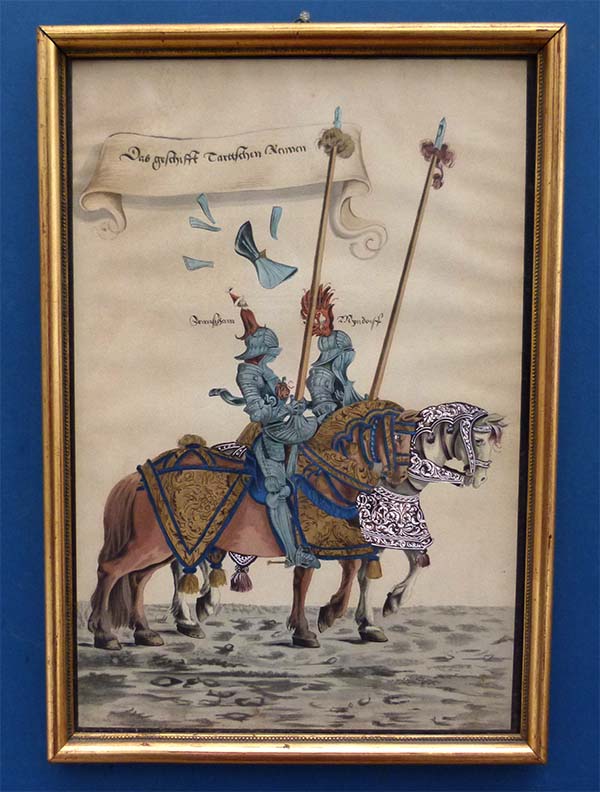 Das geschifft Tartschen Rennen
Wyndorff